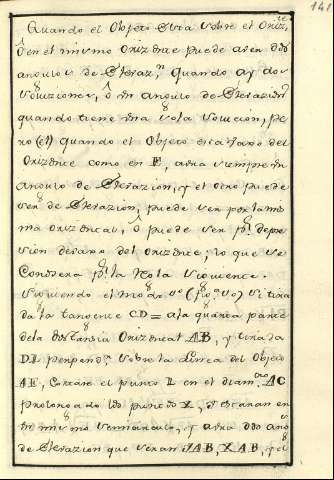 141
Quando el Objeto esta sobre el Oriz.te
ô en el mismo Orizonte puede aver dos
angulos de Elevaz.n Quando ay dos
Soluziones, ô un angulo de Elevazion
quando tiene una sola Solucion, pe
ro (et) Quando el Objeto esta vajo del
Orizonte como en F, avra siempre un
angulo de Elevazion, y el otro puede
ser de Elevazion, puede ser por la mis
ma orizontal, ô puede ser p.r depre
sion devajo del Orizonte; lo que se
Conosera p.r la Regla siguiente.
Siguiendo el modo
da la tangente CD = a la quarta parte
de la distansia Orizontal AB, y tirada
DI perpend.r sobre la Linea del Objeto
AE, Cortara el punto I en el diam.tro AC
prolongado los puntos X, Y estaran en
un mismo semicirculo, y avra dos ang
de Elevazion que seran YAB, XAB, y si